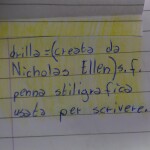 drilla=(creata da
Nicholas Ellen) s.f.
penna stiligrafica
usata per scrivere.